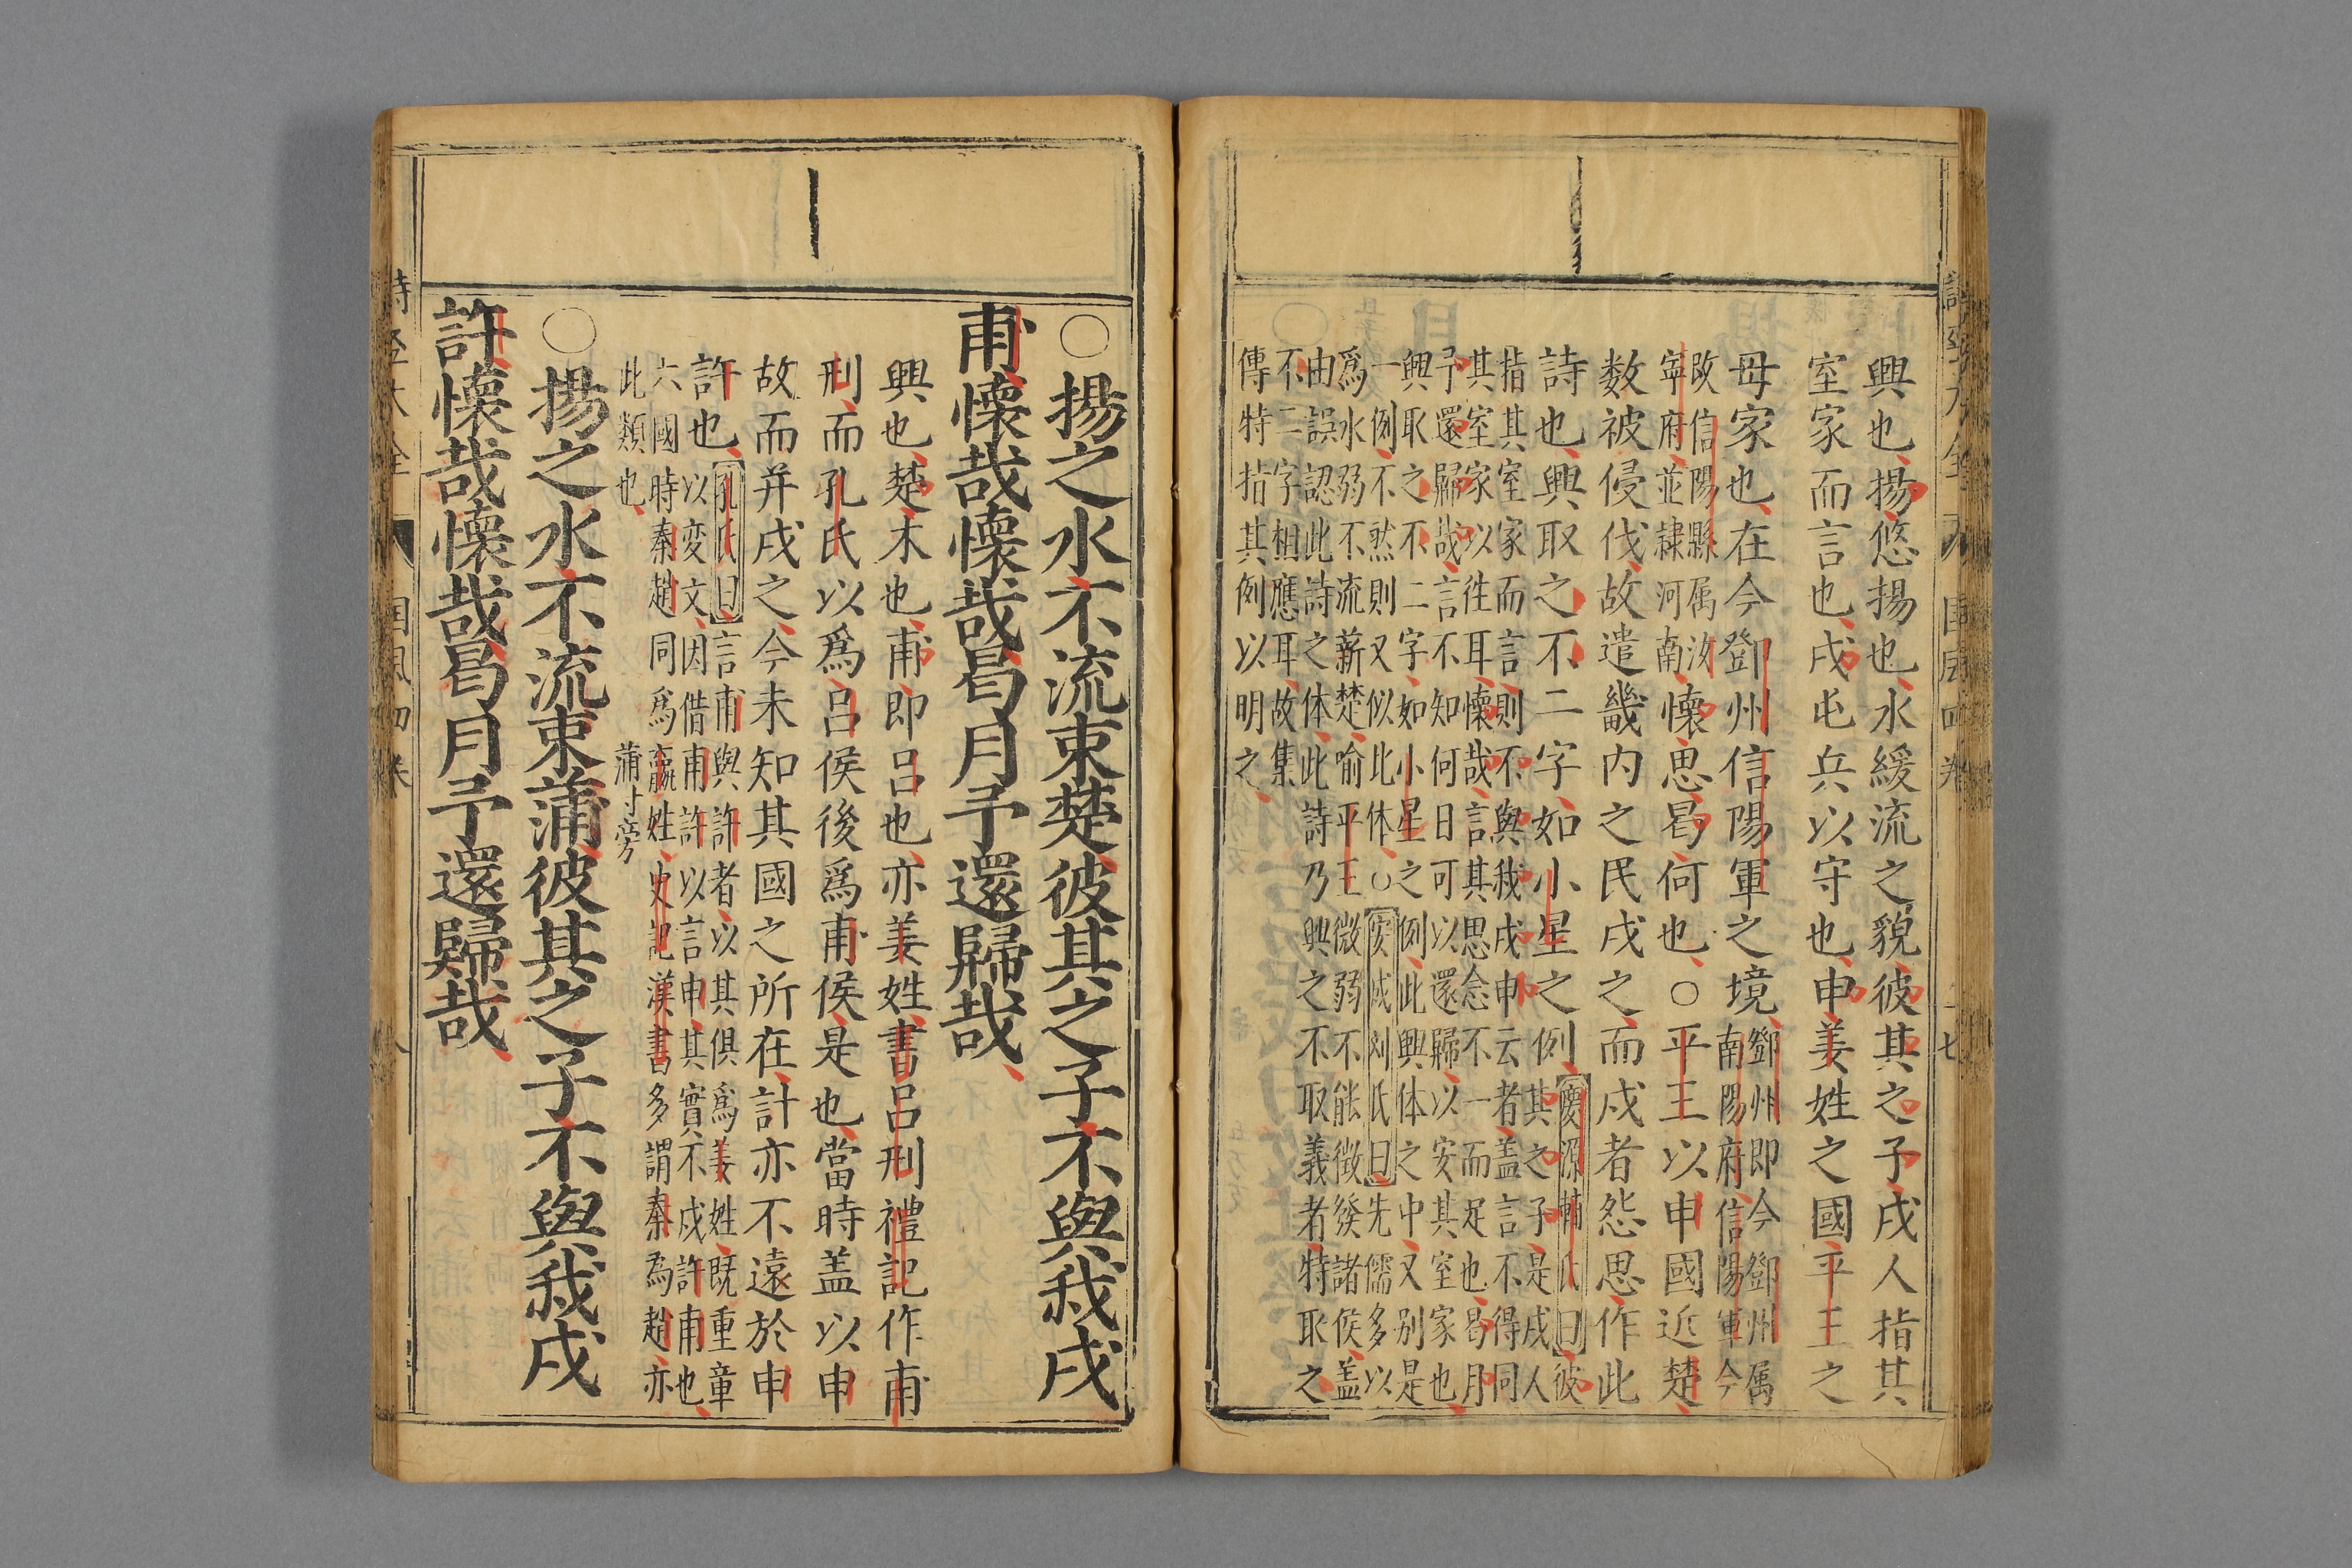 興也揚悠揚也水緩流之貌彼其之子戍人指其
室家而言也戍屯兵以守也申姜姓之國平王之
母家也在今鄧州信陽軍之境鄧州即今鄧州属
南陽府信陽軍今
改信陽縣属汝
寧府並隷河南懷思曷何也○平王以申國近楚
数被侵伐故遣畿内之民戍之而戍者怨思作此
詩也興取之不二字如小星之例慶源輔氏曰彼
其之子是戍人
指其室家而言則不與我戍申云者盖言不得同
其室家以徃耳懷哉言其思念不一而足也曷月
予還歸哉言不知何日可以還歸以安其室家也
興取之不二字如小星之例此興体之中又别是
一例不然則又似比体○安成刘氏曰先儒多以
爲水弱不流薪楚喻平王微弱不能徴發諸侯盖
由誤認此詩之体此詩乃興之不取義者特取之
不二字相應耳故集
傳特指其例以明之
○揚之水不流束楚彼其之子不與我戍
甫懷哉懷哉曷月予還歸哉
興也楚木也甫即吕也亦姜姓書吕刑禮記作甫
刑而孔氏以爲吕侯後爲甫侯是也當時盖以申
故而并戍之今未知其國之所在計亦不遠於申
許也孔氏曰言甫與許者以其俱爲姜姓既重章
以变文因借甫許以言申其實不戍許甫也
六國時秦趙同爲嬴姓史記漢書多謂秦為趙亦
此類也
蒲寸旁
○揚之水不流束蒲彼其之子不與我戍
許懷哉懷哉曷月予還歸哉